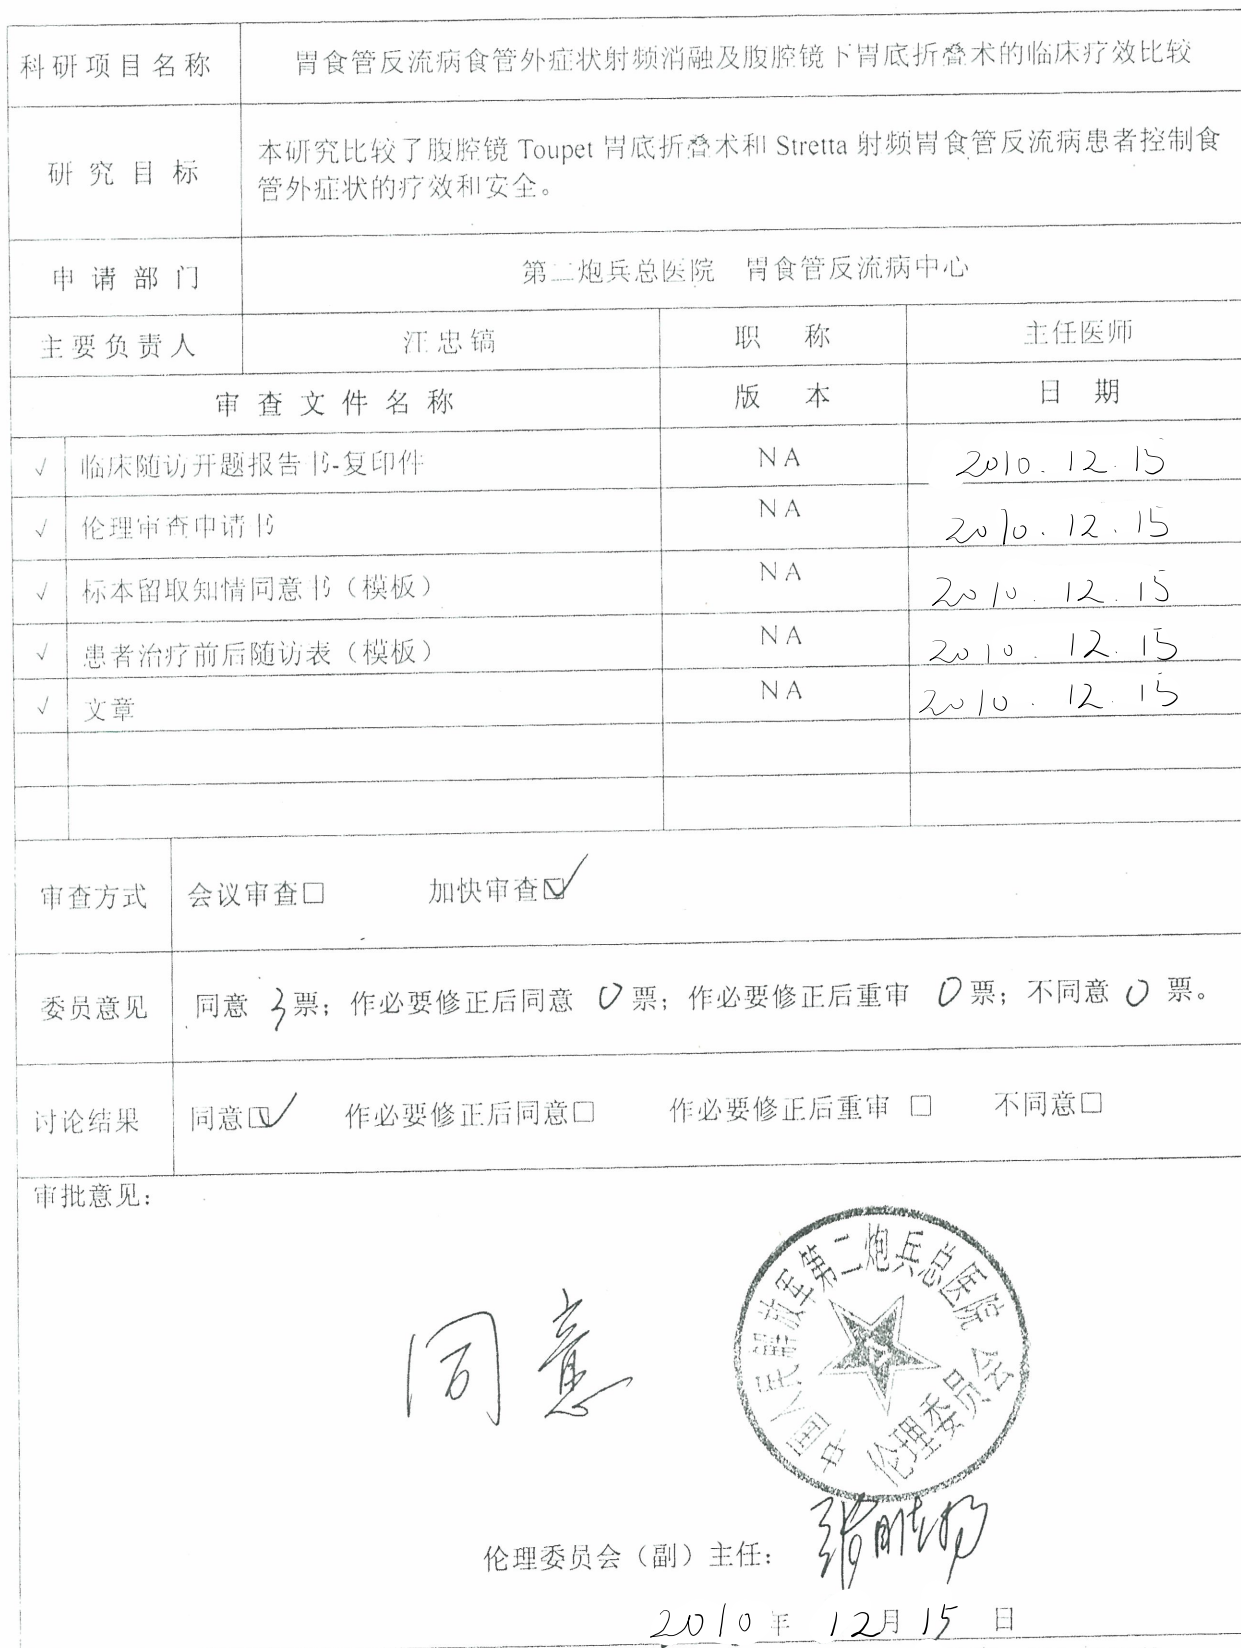 科研项目名称 胃食管反流病食管外症状射频消融及腹腔镜下胃底折叠术的临床疗效比较
研究目标 本研究比较了腹腔镜 Toupet 胃底折叠术和 Stretta 射频胃食管反流病患者控制食
管外症状的疗效和安全。
申请部门 第二炮兵总医院 胃食管反流病中心
主要负责人 汪忠镐 职 称 主任医师
审查文件名称 版 本 日 期
√ 临床随访开题报告书-复印件 NA 2010.12.15
√ 伦理审查申请书 NA 2010.12.15
√ 标本留取知情同意书（模板） NA 2010.12.15
√ 患者治疗前后随访表（模板） NA 2010.12.15
√ 文章 NA 2010.12.15
审查方式 会议审查□ 加快审查☑
委员意见 同意 3 票；作必要修正后同意 0 票；作必要修正后重审 0 票；不同意 0 票。
讨论结果 同意☑ 作必要修正后同意□ 作必要修正后重审 □ 不同意□
审批意见：
中国人民解放军第二炮兵总医院
伦理委员会
同意
伦理委员会（副）主任：
2010 年 12 月 15 日